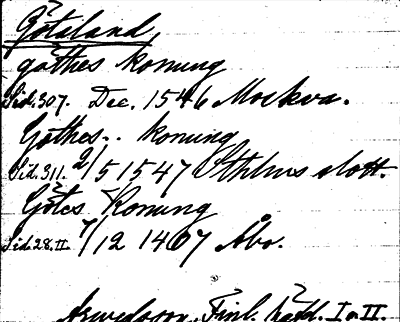 Götaland,
gøthes konung
Sid. 307. Dec. 1546 Moskva.
Gøthes.. konung
Sid. 311. 2/5 1547 Sthlms slott.
Götes Konung
Sid. 28. II 7/12 1407 Åbo.
Arwedsson, Finl. Hdl. I o. II.